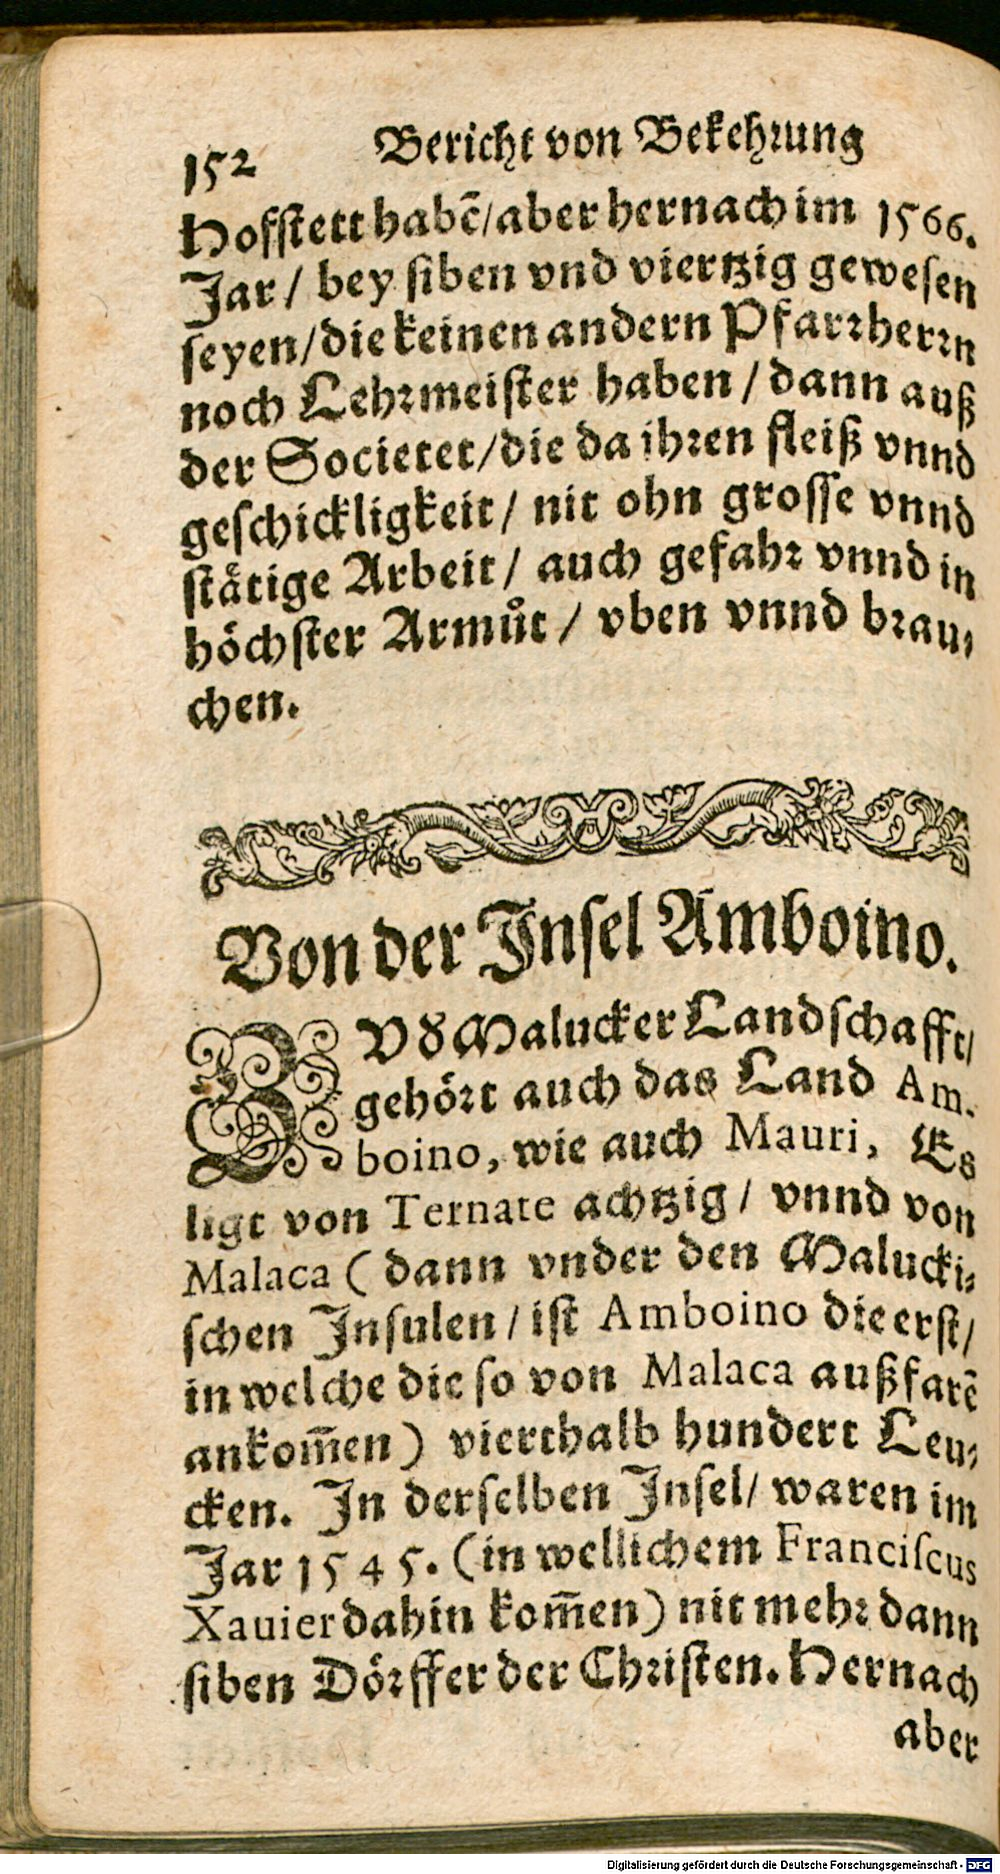 152 Bericht von Bekehrung
Hofstett habẽ/aber hernach im 1566.
Jar / bey siben vnd viertzig gewesen
seyen/die keinen andern Pfarrherrn
noch Lehrmeister haben / dann auß
der Societet/die da ihren fleiß vnnd
geschickligkeit / nit ohn grosse vnnd
stätige Arbeit / auch gefahr vnnd in
höchster Armůt / vben vnnd brau-
chen.
Von der Insel Amboino.
ZV d' Malucker Landschafft/
gehört auch das Land Am-
boino, wie auch Mauri, Es
ligt von Ternate achtzig / vnnd von
Malaca ( dann vnder den Malucki-
schen Insulen / ist Amboino die erst/
in welche die so von Malaca außfarẽ
ankom̃en ) vierthalb hundert Leu-
cken. In derselben Insel/ waren im
Jar 1545. (in wellichem Franciscus
Xauier dahin kom̃en) nit mehr dann
siben Dörffer der Christen. Hernach
aber
Digitalisierung gefördert durch die Deutsche Forschungsgemeinschaft - DFG